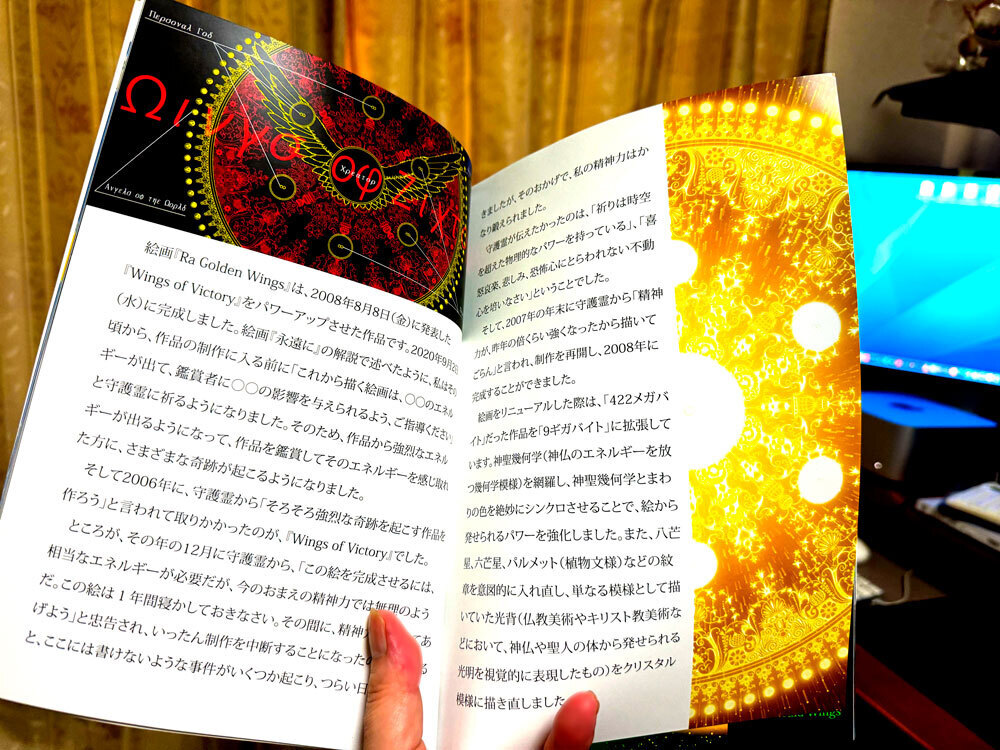 Περσοναλ Γοδ
Ωινγσ οφ
Χρεατορ
Ανγελσ οφ τηε Ωορλδ
絵画『Ra Golden Wings』は、2008年8月8日(金)に発表した
『Wings of Victory』をパワーアップさせた作品です。2020年9月2日
(水)に完成しました。絵画『永遠に』の解説で述べたように、私はその
頃から、作品の制作に入る前に「これから描く絵画は、〇〇のエネル
ギーが出て、鑑賞者に〇〇の影響を与えられるよう、ご指導ください」
と守護霊に祈るようになりました。そのため、作品から強烈なエネル
ギーが出るようになって、作品を鑑賞してそのエネルギーを感じ取れ
た方に、さまざまな奇跡が起こるようになりました。
そして2006年に、守護霊から「そろそろ強烈な奇跡を起こす作品を
作ろう」と言われて取りかかったのが、『Wings of Victory』でした。
ところが、その年の12月に守護霊から、「この絵を完成させるには、
相当なエネルギーが必要だが、今のおまえの精神力では無理のよう
だ。この絵は1年間寝かしておきなさい。その間に、精神力 てあ
げよう」と忠告され、いったん制作を中断することになった る
と、ここには書けないような事件がいくつか起こり、つらい日
きましたが、そのおかげで、私の精神力はか
なり鍛えられました。
守護霊が伝えたかったのは、「祈りは時空
を超えた物理的なパワーを持っている」、「喜
怒哀楽、悲しみ、恐怖心にとらわれない不動
心を培いなさい」ということでした。
そして、2007年の年末に守護霊から「精神
力が、昨年の倍くらい強くなったから描いて
ごらん」と言われ、制作を再開し、2008年に
完成することができました。
絵画をリニューアルした際は、「422メガバ
イト」だった作品を「9ギガバイト」に拡張して
います。神聖幾何学(神仏のエネルギーを放
つ幾何学模様)を網羅し、神聖幾何学とまわ
りの色を絶妙にシンクロさせることで、絵から
発せられるパワーを強化しました。また、八芒
星、六芒星、パルメット(植物文様)などの紋
章を意図的に入れ直し、単なる模様として描
いていた光背(仏教美術やキリスト教美術な
どにおいて、神仏や聖人の体から発せられる
光明を視覚的に表現したもの)をクリスタル
模様に描き直しました
Wings